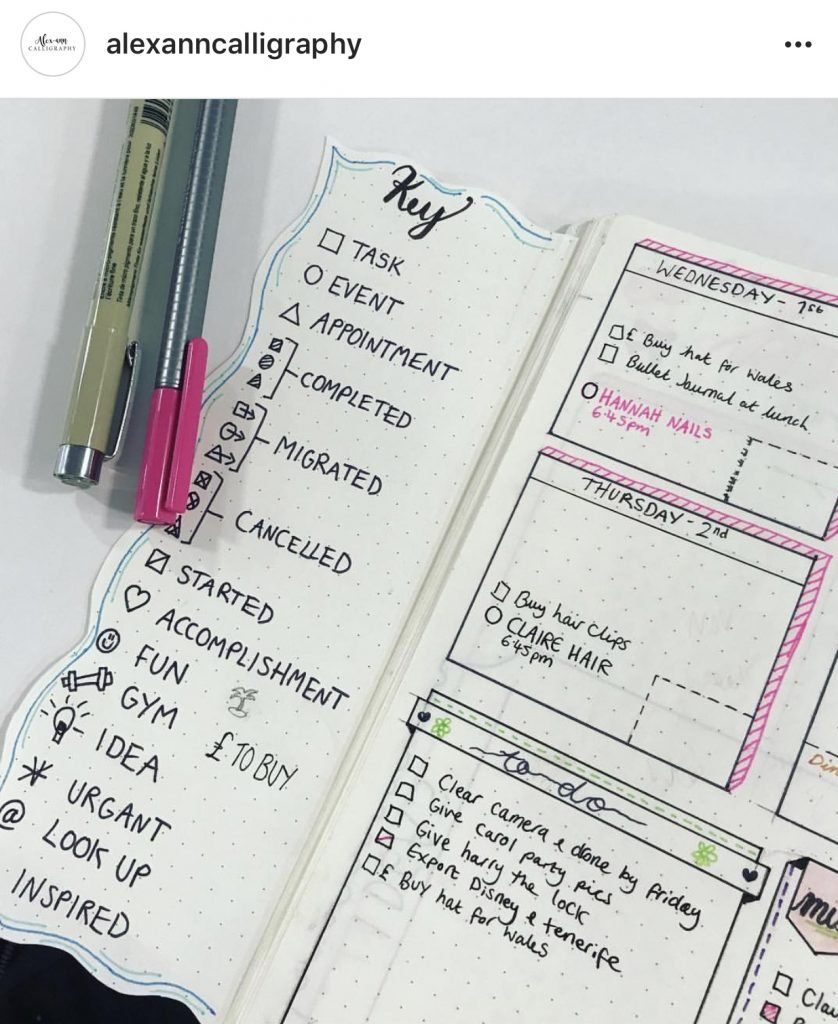 Alex-ann
CALLIGRAPHY
alexanncalligraphy
Key
TASK
EVENT
APPOINTMENT
COMPLETED
MIGRATED
CANCELLED
STARTED
ACCOMPLISHMENT
FUN
GYM
IDEA
£ TO BUY
URGANT
@ LOOK UP
INSPIRED
WEDNESDAY - 1st
£ Buy hat for Wales
Bullet Journal at lunch
HANNAH NAILS
6:45pm
THURSDAY - 2nd
Buy hair clips
CLAIRE HAIR
6:45pm
to-do
Clear camera & drone by friday
Give carol party pics
Give harry the lock
Export Disney & tenerife
£ Buy hat for Wales